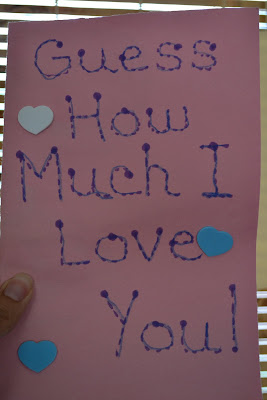 Guess
How
Much I
Love
You!